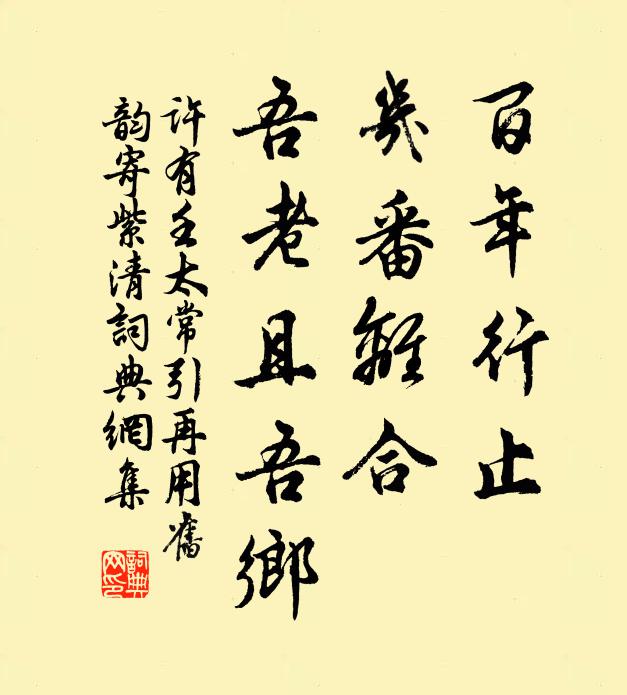 百年行止
幾番離合
吾老且吾鄉
許有壬太常引再用舊
韵寄紫清詞典網集
詞典網印